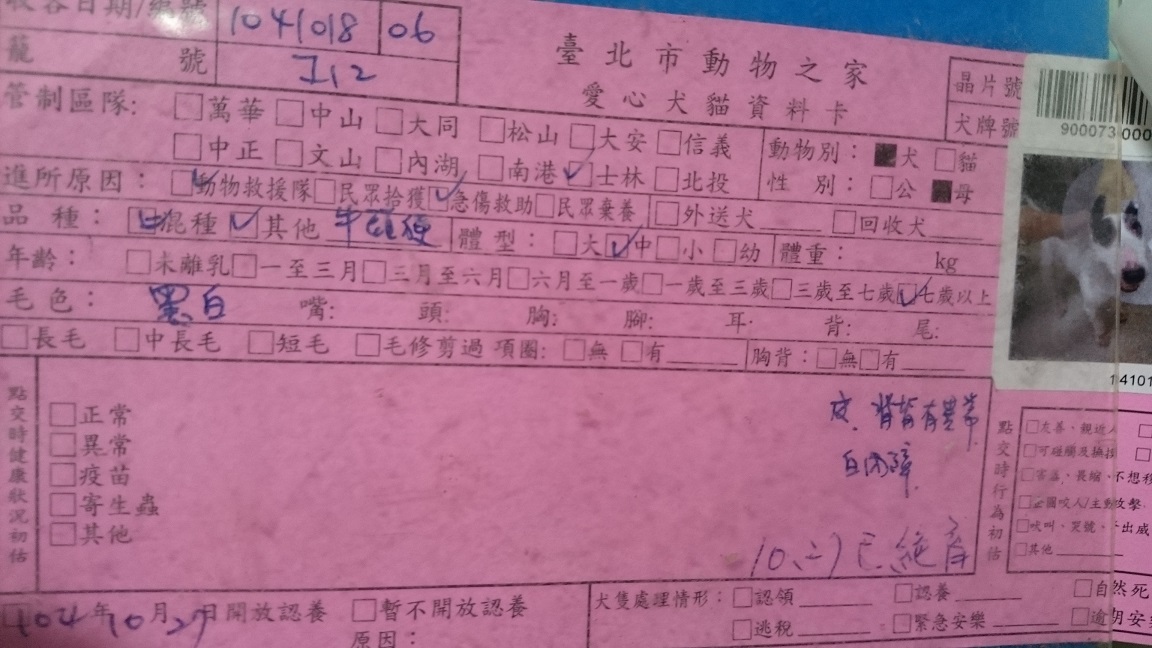 收容日期/編號 1041018 06
籠 號 I12
臺北市動物之家
愛心犬貓資料卡
晶片號
犬牌號
900073 000
管制區隊: □萬華 □中山 □大同 □松山 □大安 □信義
□中正 □文山 □內湖 □南港 ☑士林 □北投
動物別: ■犬 □貓
性 別: □公 ■母
進所原因: ☑動物救援隊 □民眾拾獲 ☑急傷救助 □民眾棄養 □外送犬 □回收犬
品種: ☑混種 ☑其他 體型: □大 ☑中 □小 □幼 體重: kg
年齡: □未離乳 □一至三月 □三月至六月 □六月至一歲 □一歲至三歲 □三歲至七歲 ☑七歲以上
毛色: 黑白 嘴: 頭: 胸: 腳: 耳: 背: 尾:
□長毛 □中長毛 □短毛 □毛修剪過 項圈: □無 □有 胸背: □無 □有
14101
點交時健康狀況初估
□正常
□異常
□疫苗
□寄生蟲
□其他
白內障
已絕育
點交時行為初估
□友善、親近人
□可碰觸及撫摸
□害羞、畏縮、不想移
□企圖咬人/主動攻擊
□吠叫、哭號、
□其他
104年10月27日開放認養 □暫不開放認養
原因:
犬隻處理情形: □認領 □認養 □自然死
□逃稅 □緊急安樂 □逾期安